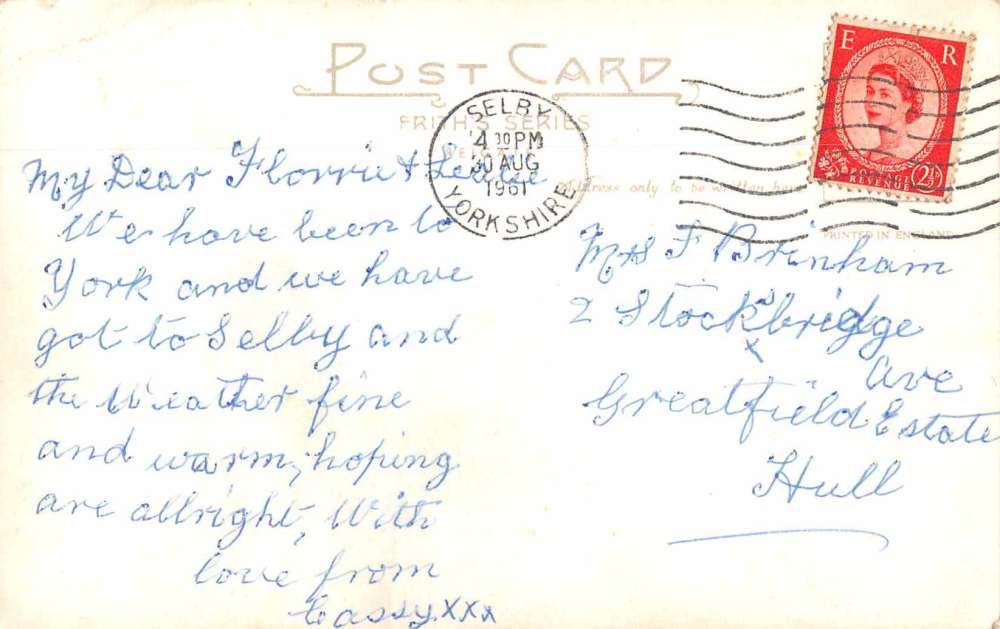 POST CARD
FRITH'S SERIES
SELBY
4 30 PM
30 AUG
1961
YORKSHIRE
E R
REVENUE 2½D
Address only to be written here
PRINTED IN ENGLAND
My Dear Florrie &
We have been to
York and we have
got to Selby and
the Weather fine
and warm, hoping
are allright, With
love from
Cassy xxx
Mrs F Brinham
2 Stocksbridge
Ave
Greatfield Estate
Hull